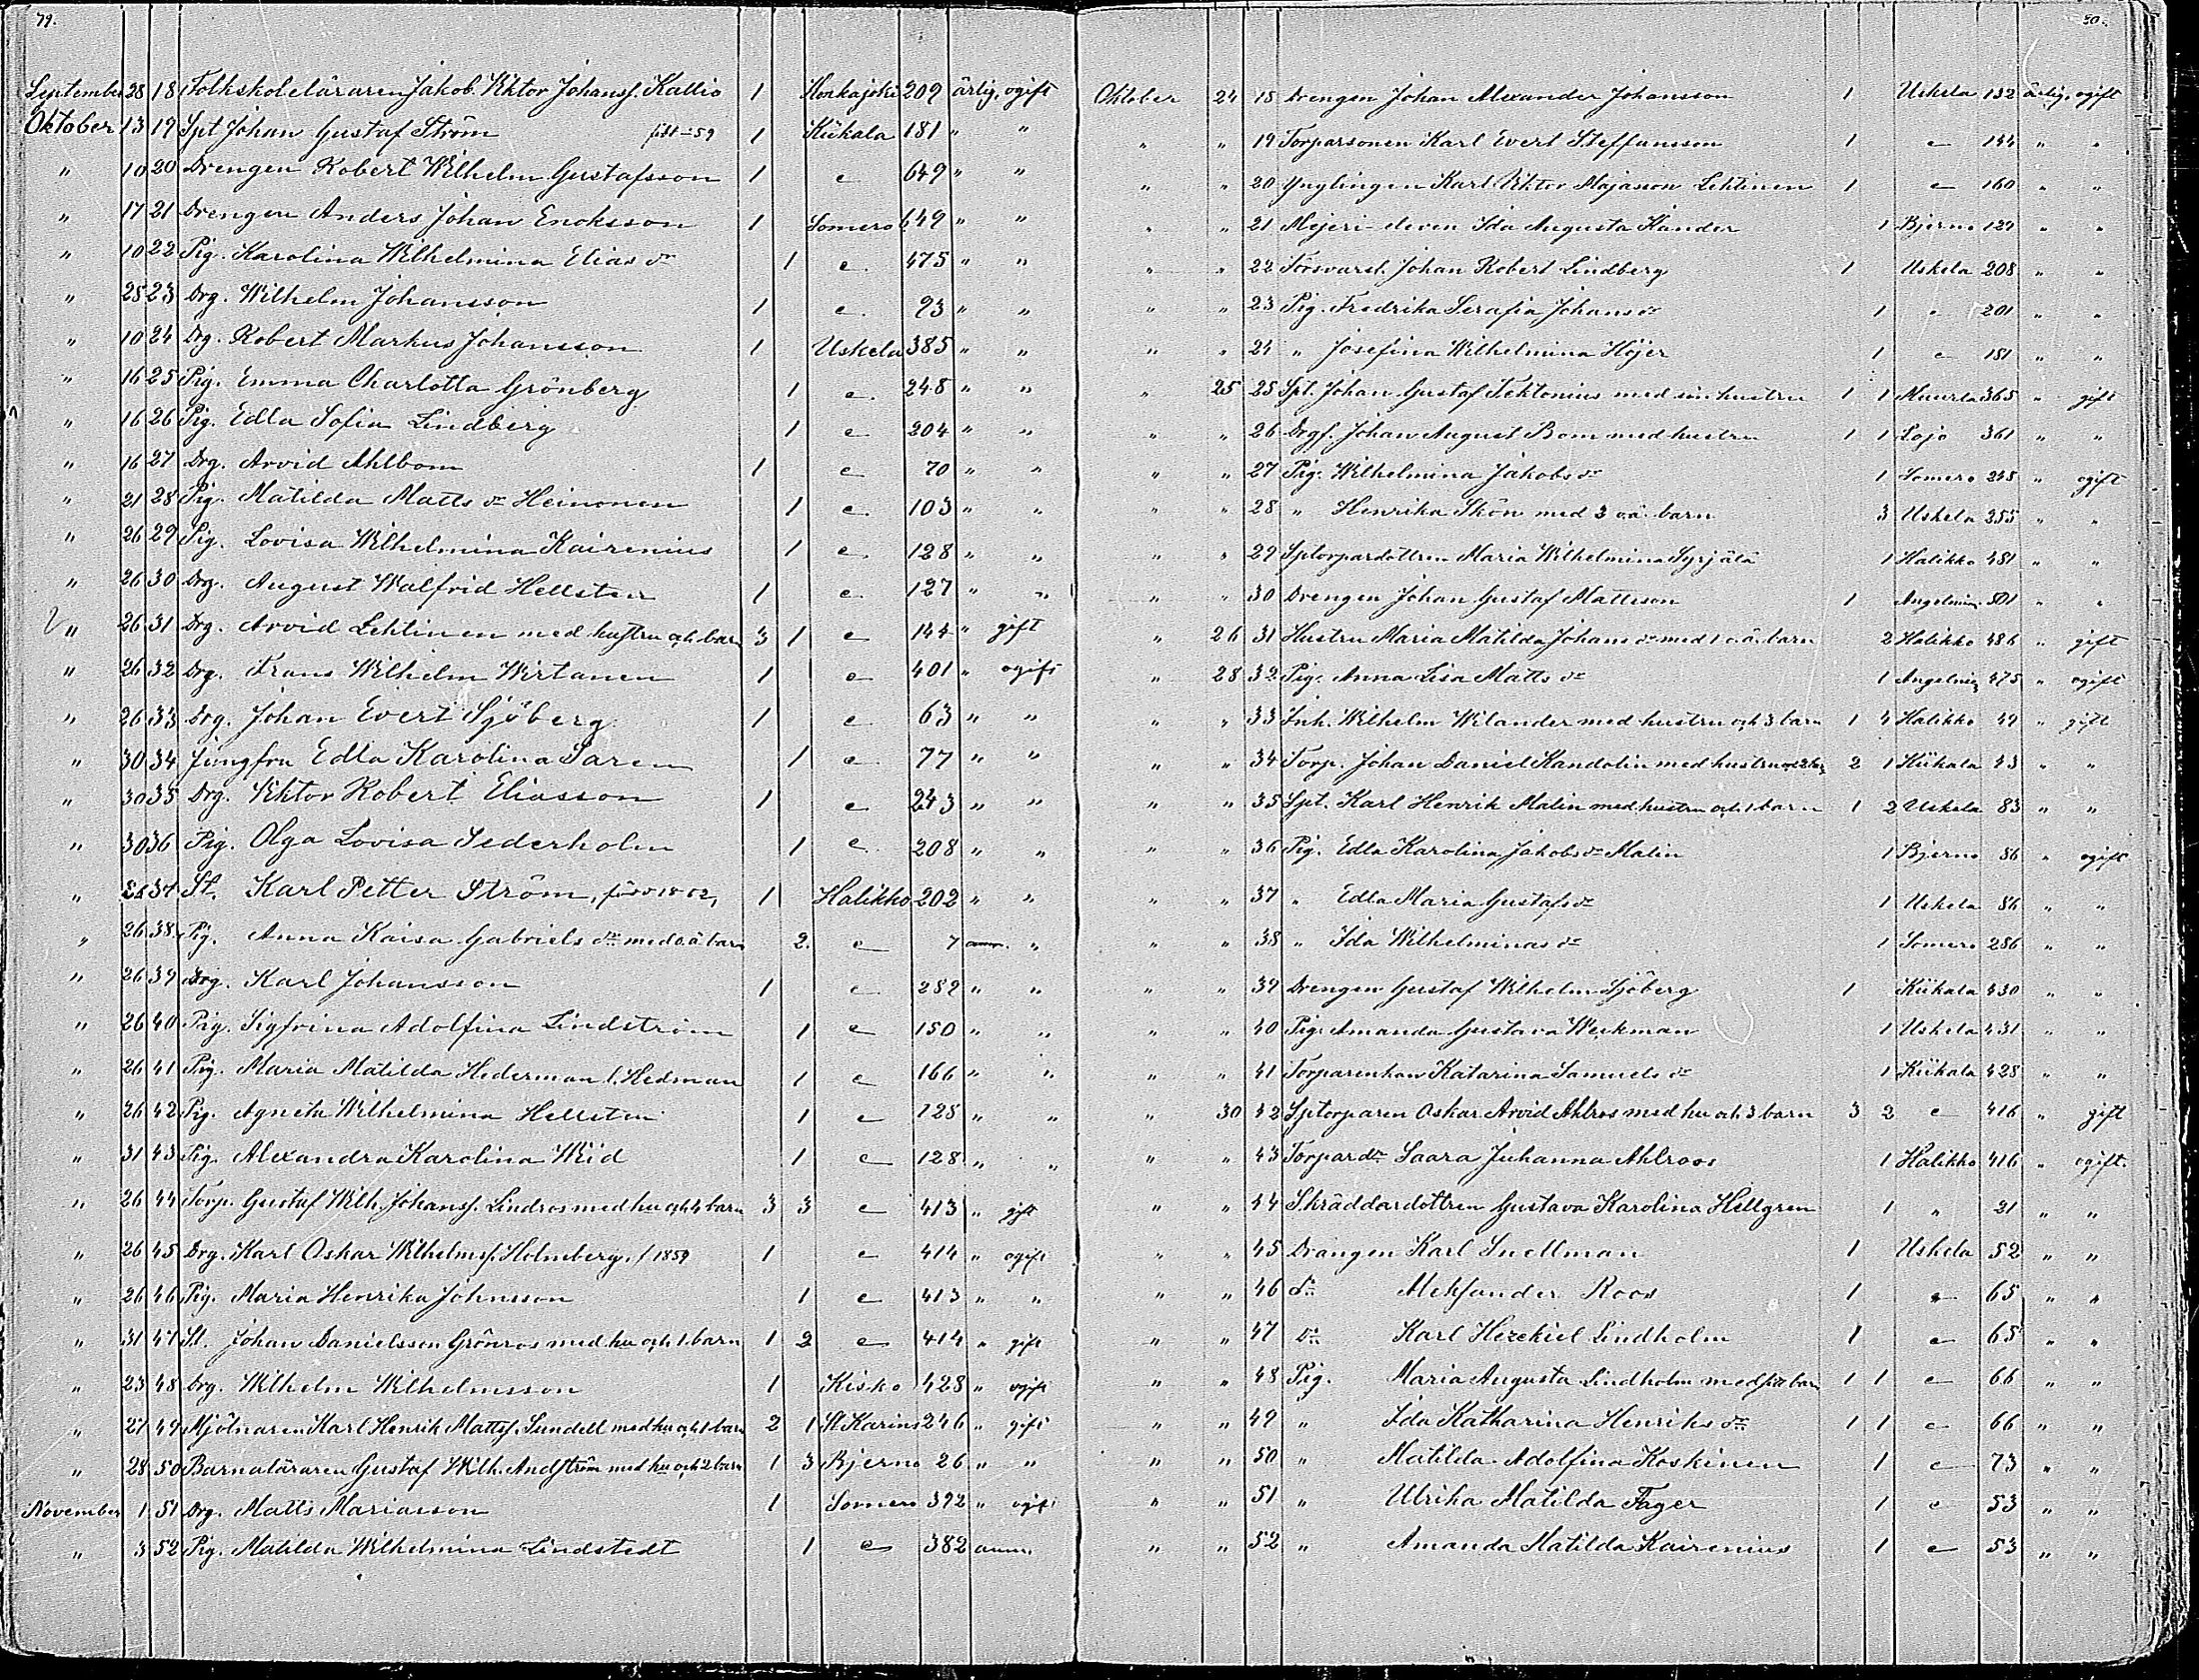 79.
September 28 18 Folkskoleläraren Jakob Viktor Johansf. Kallio 1 209 ärlig, ogift
Oktober 13 19 Spt Johan Gustaf Ström född -59 1 Kiikala 181 " "
" 10 20 Drengen Robert Wilhelm Gustafsson 1 e 649 " "
" 17 21 Drengen Anders Johan Enoksson 1 Somero 649 " "
" 10 22 Pig. Karolina Wilhelmina Elias dr 1 e 475 " "
" 28 23 Drg. Wilhelm Johansson 1 e. 93 " "
" 10 24 Drg. Robert Markus Johansson 1 Uskela 385 " "
" 16 25 Pig. Emma Charlotta Grönberg 1 e. 248 " "
" 16 26 Pig. Edla Sofia Lindberg 1 e 204 " "
" 16 27 Drg. Arvid Ahlbom 1 e 70 " "
" 21 28 Pig. Matilda Matts dr Heinonen 1 e. 103 " "
" 26 29 Pig. Lovisa Wilhelmina Kairenius 1 e. 128 " "
" 26 30 Drg. August Walfrid Hellsten 1 e. 127 " "
" 26 31 Drg. Arvid Lehtinen med hustru och barn 3 1 e 144 " gift
" 26 32 Drg. Frans Wilhelm Wirtanen 1 e 401 " ogift
" 26 33 Drg. Johan Evert Sjöberg 1 e 63 " "
" 30 34 Jungfru Edla Karolina Saren 1 e 77 " "
" 30 35 Drg. Viktor Robert Eliasson 1 e 243 " "
" 30 36 Pig. Olga Lovisa Sederholm 1 e 208 " "
" 37 St. Karl Petter Ström, född 18 52, 1 Halikko 202 " "
" 26 38. Pig. Anna Kaisa Gabriels dr med o.ä barn 2. e 7 anm. "
" 26 39 Drg. Karl Johansson 1 e 289 " "
" 26 40 Pig. Sigfrina Adolfina Lindström 1 e 150 " "
" 26 41 Pig. Maria Matilda Hederman l. Hedman 1 e 166 " "
" 26 42 Pig. Agneta Wilhelmina Hellsten 1 e 128 " "
" 31 43 Pig. Alexandra Karolina Wid 1 e 128 " "
" 26 44 Torp. Gustaf Wilh. Johansf. Lindros med hu och 4 barn 3 3 e 413 " gift
" 26 45 Drg. Karl Oskar Wilhelmsf. Holmberg. f 1859 1 e 414 " ogift
" 26 46 Pig. Maria Henrika Johnsson 1 e 413 " "
" 31 47 St. Johan Danielsson Grönros med hu och 1 barn 1 2 e 414 " gift
" 23 48 Drg. Wilhelm Wilhelmsson 1 Kisko 428 " ogift
" 27 49 Mjölnaren Karl Henrik Mattsf. Sundell med hu och 1 barn 2 1 St Karins 246 " gift
" 28 50 Barnaläraren Gustaf Wilh. Andström med hu och 2 barn 1 3 Bjerno 26 " "
November 1 51 Drg. Matts Mariasson 1 Somero 392 " ogift
" 3 52 Pig. Matilda Wilhelmina Lindstedt 1 e 382 anm.
80.
Oktober 24 18 Drengen Johan Alexander Johansson 1 Uskela 132 ärlig, ogift
" " 19 Torparsonen Karl Evert Steffansson 1 e 144 " "
" " 20 Ynglingen Karl Viktor Majason Lehtinen 1 e 160 " "
" " 21 Mejeri-eleven Ida Augusta Kander 1 Bjerno 129 " "
" " 22 Försvarsl. Johan Robert Lindberg 1 Uskela 208 " "
" " 23 Pig. Fredrika Serafia Johans dr 1 " 201 " "
" " 24 " Josefina Wilhelmina Höjer 1 e 181 " "
" 25 25 Spt. Johan Gustaf Tektonius med sin hustru 1 1 Muurla 365 " gift
" " 26 Drgf. Johan August Bom med hustru 1 1 Lojo 361 " "
" " 27 Pig. Wilhelmina Jakobs dr 1 Somero 245 " ogift
" " 28 " Henrika Skön med 2 o.ä. barn 3 Uskela 255 " "
" " 29 Sptorpardottren Maria Wilhelmina Syrjälä 1 Halikko 481 " "
" " 30 Drengen Johan Gustaf Mattsson 1 Angelnie 501 " "
" 26 31 Hustru Maria Matilda Johans dr med 1 o.ä. barn 2 Halikko 486 " gift
" 28 32 Pig. Anna Lisa Matts dr 1 Angelnie 475 " ogift
" " 33 Inh. Wilhelm Wilander med hustru och 3 barn 1 4 Halikko 49 " gift
" " 34 Torp. Johan Daniel Kandolin med hustru och 2 bar 2 1 Kiikala 43 " "
" " 35 Spt. Karl Henrik Malin med hustru och 1 barn 1 2 Uskela 83 " "
" " 36 Pig. Edla Karolina Jakobs dr Malin 1 Bjerno 86 " ogift
" " 37 " Edla Maria Gustafs dr 1 Uskela 86 " "
" " 38 " Ida Wilhelminas dr 1 Somero 286 " "
" " 39 Drengen Gustaf Wilhelm Sjöberg 1 Kiikala 430 " "
" " 40 Pig. Amanda Gustava Weckman 1 Uskela 431 " "
" " 41 Torparenkan Katarina Samuels dr 1 Kiikala 428 " "
" 30 42 Sptorparen Oskar Arvid Ahlros med hu och 3 barn 3 2 e 416 " gift
" " 43 Torpardr Saara Juhanna Ahlroos 1 Halikko 416 " ogift.
" " 44 Skräddardottren Gustava Karolina Hellgren 1 " 21 " "
" " 45 Drängen Karl Snellman 1 Uskela 52 " "
" " 46 dn Aleksander Roos 1 e 65 " "
" " 47 dn Karl Hezekiel Lindholm 1 e 65 " "
" " 48 Pig. Maria Augusta Lindholm med barn 1 1 e 66 " "
" " 49 " Ida Katharina Henriks dr 1 1 e 66 " "
" " 50 " Matilda Adolfina Koskinen 1 e 73 " "
" " 51 " Ulrika Matilda Fager 1 e 53 " "
" " 52 " Amanda Matilda Kairenius 1 e 53 " "